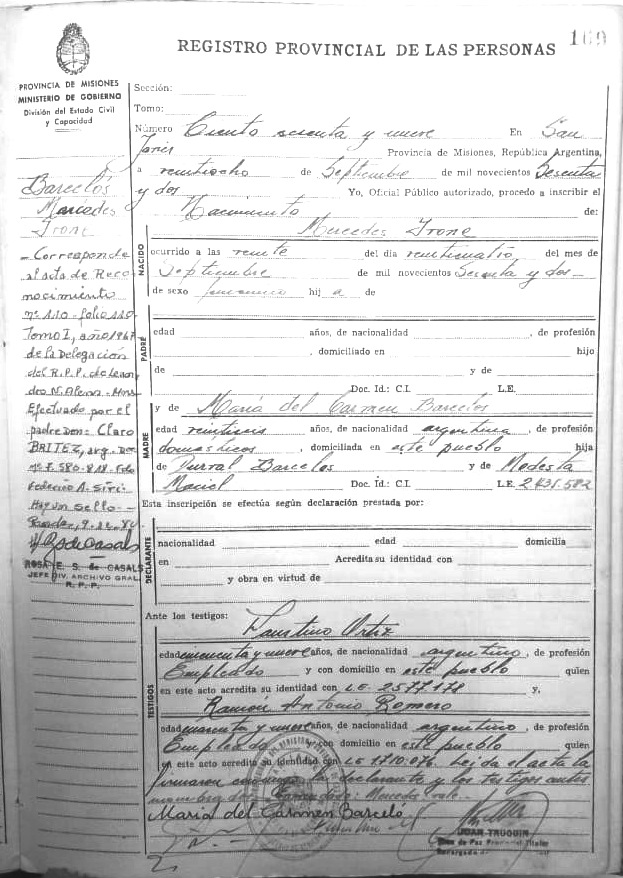 169
REGISTRO PROVINCIAL DE LAS PERSONAS
PROVINCIA DE MISIONES
MINISTERIO DE GOBIERNO
División del Estado Civil
y Capacidad
Barcelós
Mercedes
Irone
- Corresponde
al acta de Reco
nocimiento
nº 110 - folio 110
Tomo I, año 1967
de la Delegación
del R.P.P. de Lean
dro N. Alem - Mnes
Efectuado por el
padre Don: Claro
BRITEZ, arg. Doc
nº 7.580.818 - Fdo
Federico A.
Hay un sello -
Posadas,
ROSA E. S. de CASALS
JEFE DIV. ARCHIVO GRAL.
R. P. P.
Sección:
Tomo:
Número Ciento sesenta y nueve En San
Javier Provincia de Misiones, República Argentina,
a veintiocho de Septiembre de mil novecientos Sesenta
y dos Yo, Oficial Público autorizado, procedo a inscribir el
Nacimiento de:
Mercedes Irone
NACIDO
ocurrido a las veinte del día veinticuatro del mes de
Septiembre de mil novecientos Sesenta y dos
de sexo femenino hij a de
PADRE
edad años, de nacionalidad , de profesión
, domiciliado en hijo
de y de
Doc. Id.: C.I. L.E.
y de María del Carmen Barcelos
MADRE
edad veintiseis años, de nacionalidad argentina, de profesión
domésticos, domiciliada en este pueblo hija
de Durval Barcelos y de Modesta
Maciel Doc. Id.: C.I. L.E. 2.431.582
Esta inscripción se efectúa según declaración prestada por:
DECLARANTE
nacionalidad edad domicilia
en Acredita su identidad con
y obra en virtud de
Ante los testigos:
TESTIGOS
Faustino Ortiz
edad cincuenta y nueve años, de nacionalidad argentino, de profesión
Empleado y con domicilio en este pueblo quien
en este acto acredita su identidad con L.E. 2577178 y,
Ramón Antonio Romero
edad cuarenta y nueve años, de nacionalidad argentino, de profesión
Empleado y con domicilio en este pueblo quien
en este acto acredita su identidad con LE 1710.076. Leída el acta la
firmaron conmigo la declarante y los testigos antes
María del Carmen Barceló
JUAN TRUQUIN
Juez de Paz Provincial Titular
Encargado